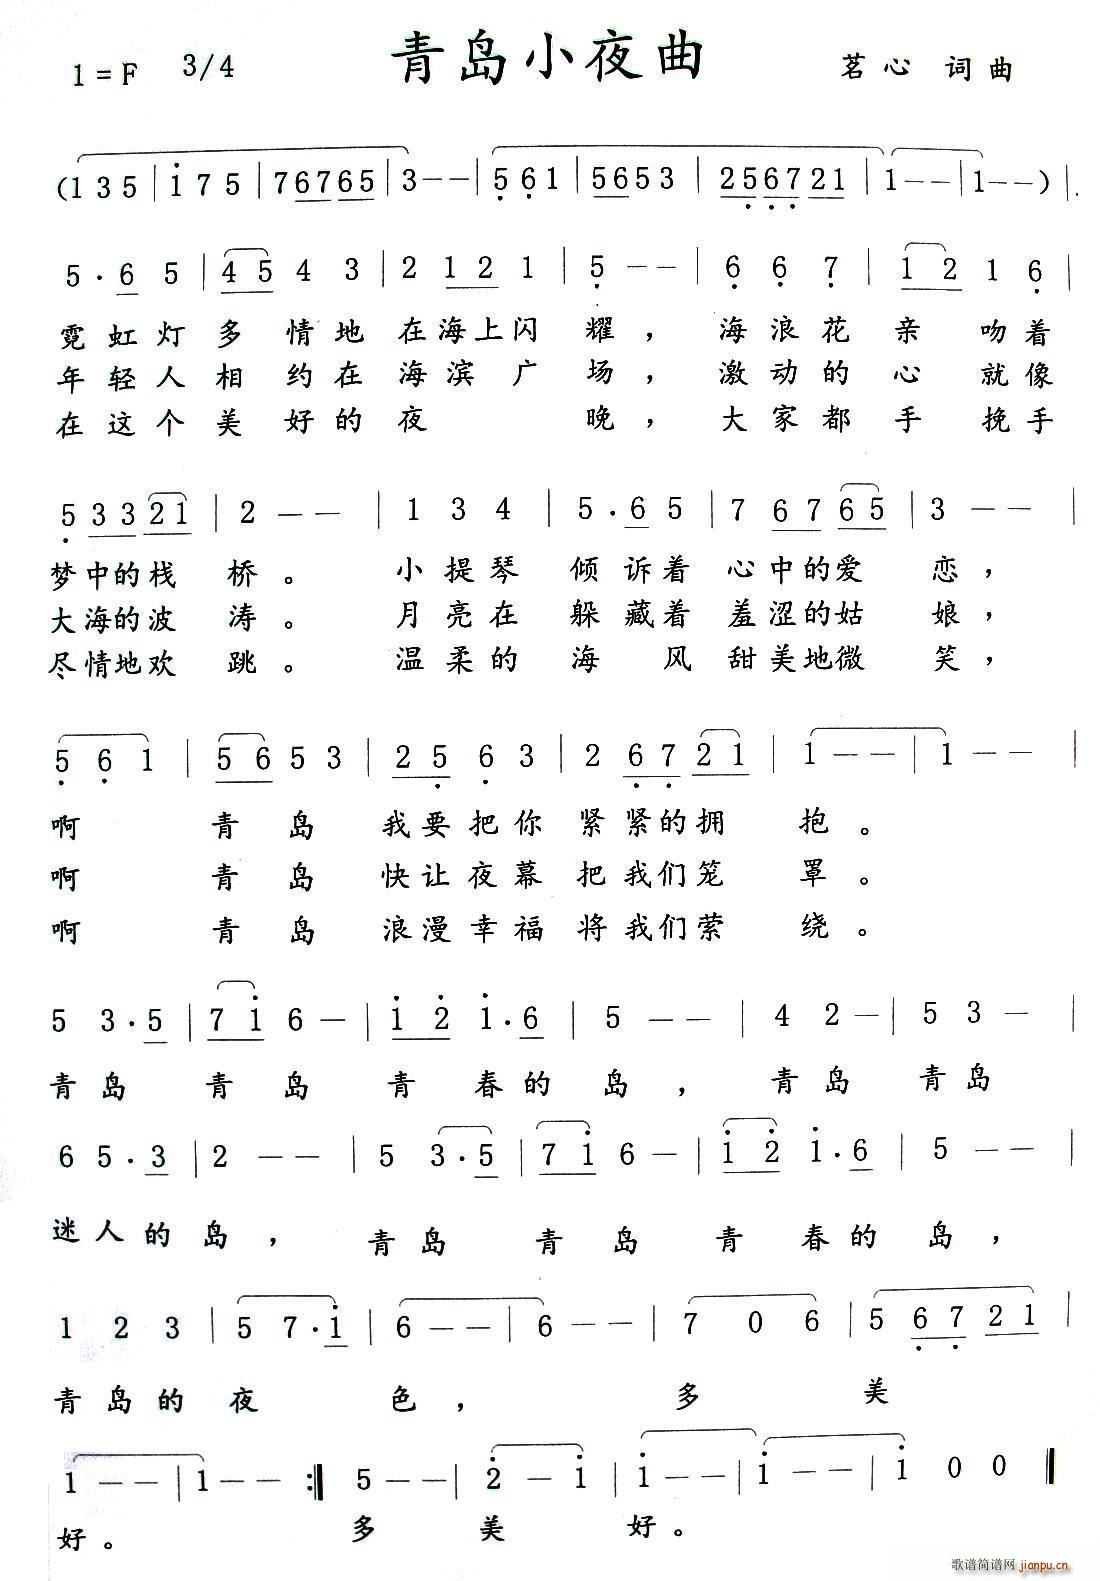 1=F 3/4 青岛小夜曲 茗心 词曲
(1 3 5 | i 7 5 | 7 6765 | 3 - - | 5 6 1 | 5653 | 256721 | 1 - - | 1 - - ) |
5 · 6 5 | 4 5 4 3 | 2 1 2 1 | 5 - - | 6 6 7 | 1 2 1 6 |
霓虹灯多情地在海上闪耀，海浪花亲吻着
年轻人相约在海滨广场，激动的心就像
在这个美好的夜晚，大家都手挽手
5 3 3 2 1 | 2 - - | 1 3 4 | 5 · 6 5 | 7 6 7 6 5 | 3 - - |
梦中的栈桥。小提琴倾诉着心中的爱恋，
大海的波涛。月亮在躲藏着羞涩的姑娘，
尽情地欢跳。温柔的海风甜美地微笑，
5 6 1 | 5 6 5 3 | 2 5 6 3 | 2 6 7 2 1 | 1 - - | 1 - - |
啊青岛我要把你紧紧的拥抱。
啊青岛快让夜幕把我们笼罩。
啊青岛浪漫幸福将我们萦绕。
5 3 · 5 | 7 i 6 - | i 2 i · 6 | 5 - - | 4 2 - | 5 3 - |
青岛青岛青春的岛，青岛青岛
6 5 · 3 | 2 - - | 5 3 · 5 | 7 i 6 - | i 2 i · 6 | 5 - - |
迷人的岛，青岛青岛青春的岛，
1 2 3 | 5 7 · i | 6 - - | 6 - - | 7 0 6 | 5 6 7 2 1 |
青岛的夜色，多美
1 - - | 1 - - :‖ 5 - - | 2 - i | i - - | i - - | i 0 0 ‖
好。多美好。
歌谱简谱网 jianpu.cn